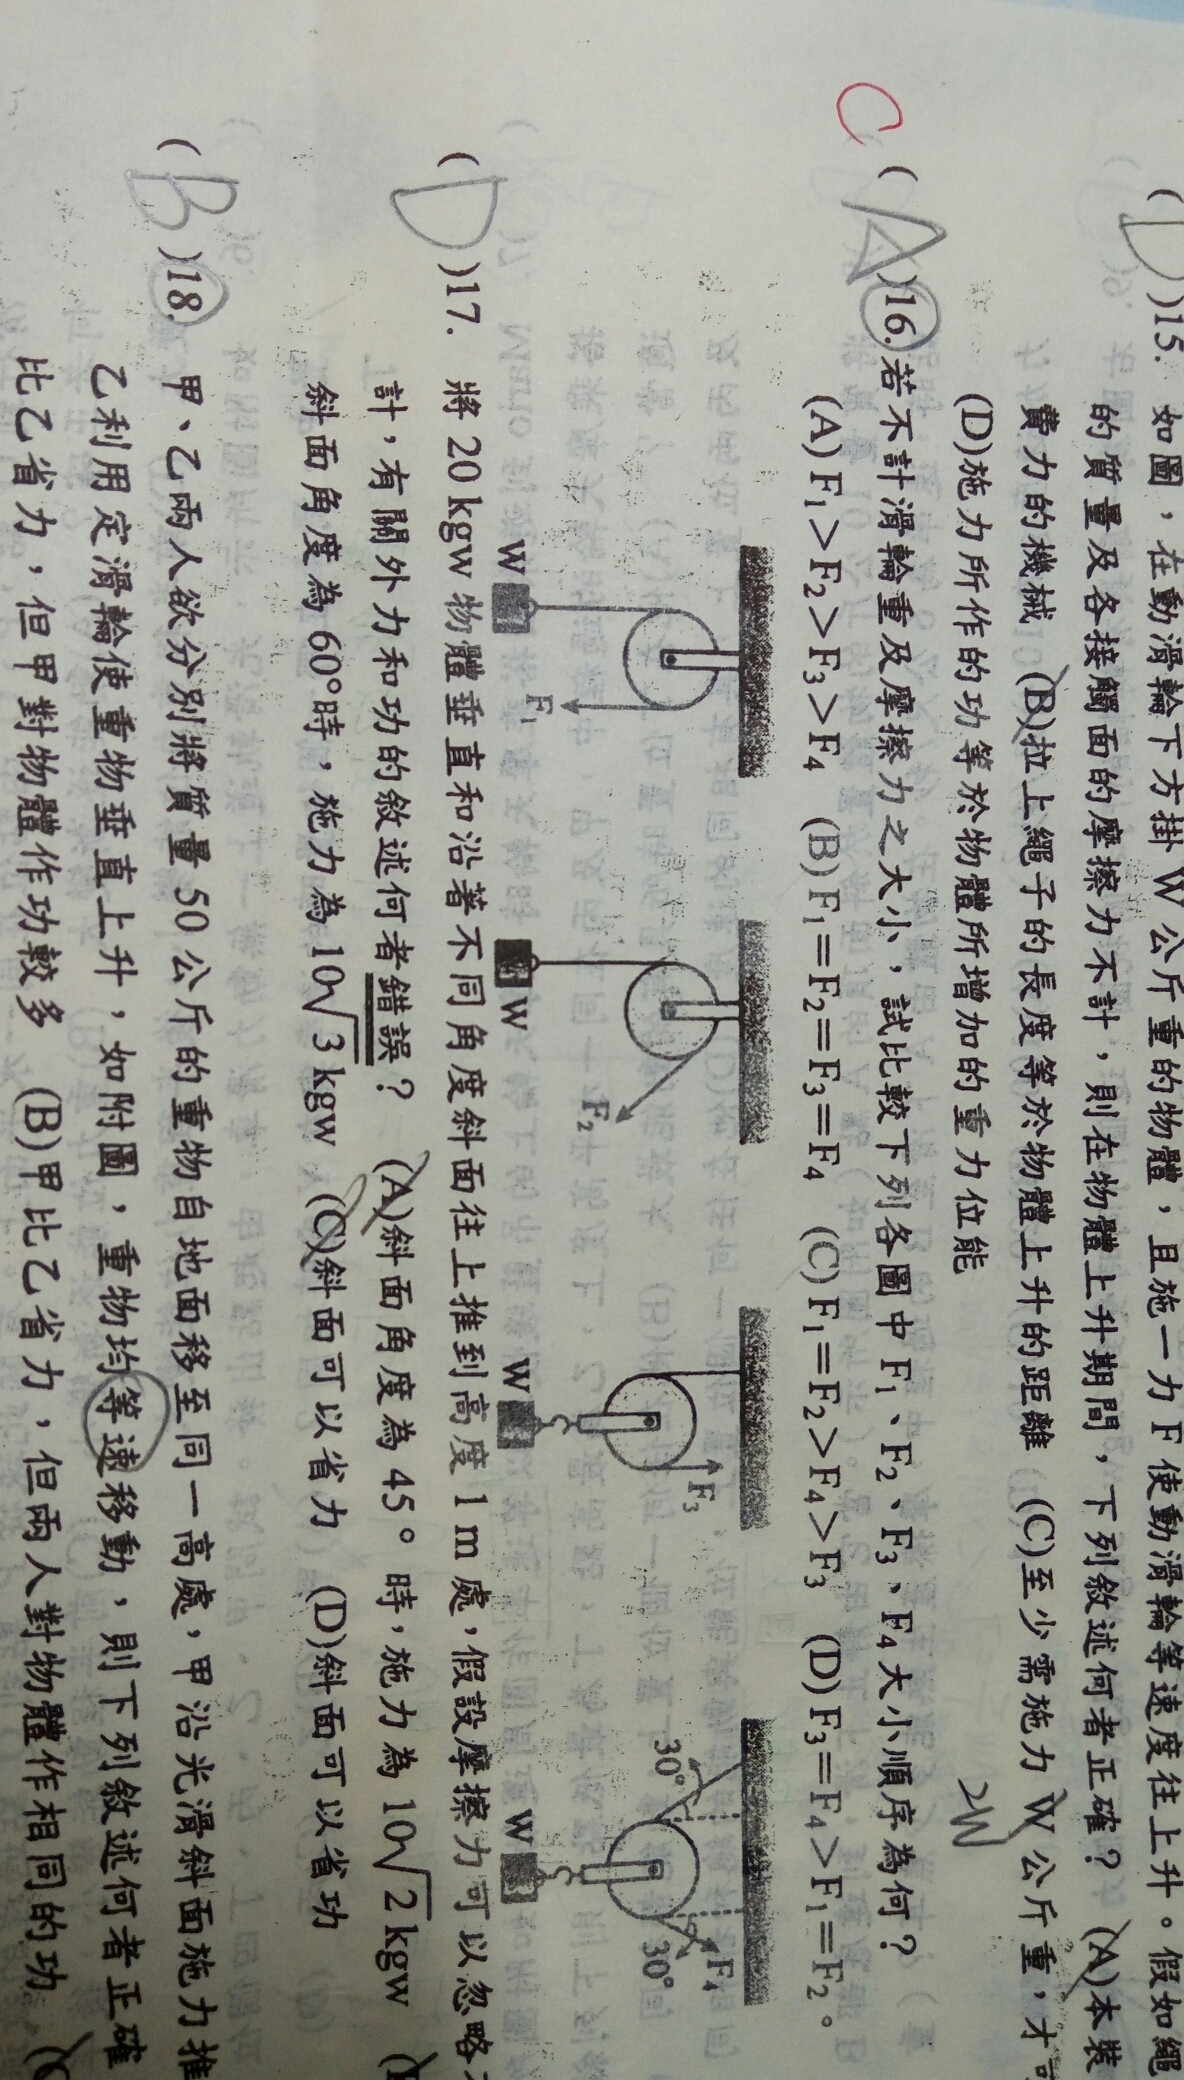 (D)15. 如圖，在動滑輪下方掛 W 公斤重的物體，且施一力 F 使動滑輪等速度往上升。假如繩
的質量及各接觸面的摩擦力不計，則在物體上升期間，下列敘述何者正確？ (A)本裝
費力的機械 (B)拉上繩子的長度等於物體上升的距離 (C)至少需施力 W 公斤重，才
2W
(D)施力所作的功等於物體所增加的重力位能
C
(A)16. 若不計滑輪重及摩擦力之大小，試比較下列各圖中 F₁、F₂、F₃、F₄大小順序為何？
(A) F₁＞F₂＞F₃＞F₄ (B) F₁＝F₂＝F₃＝F₄ (C) F₁＝F₂＞F₄＞F₃ (D) F₃＝F₄＞F₁＝F₂。
W F₁
W F₂
W F₃
W 30° 30° F₄
(D)17. 將 20 kgw 物體垂直和沿著不同角度斜面往上推到高度 1 m 處，假設摩擦力可以忽略
計，有關外力和功的敘述何者錯誤？ (A)斜面角度為 45° 時，施力為 10√2 kgw
斜面角度為 60°時，施力為 10√3 kgw (C)斜面可以省力 (D)斜面可以省功
(B)18. 甲、乙兩人欲分別將質量 50 公斤的重物自地面移至同一高處，甲沿光滑斜面施力推
乙利用定滑輪使重物垂直上升，如附圖，重物均等速移動，則下列敘述何者正確
比乙省力，但甲對物體作功較多 (B)甲比乙省力，但兩人對物體作相同的功 (C